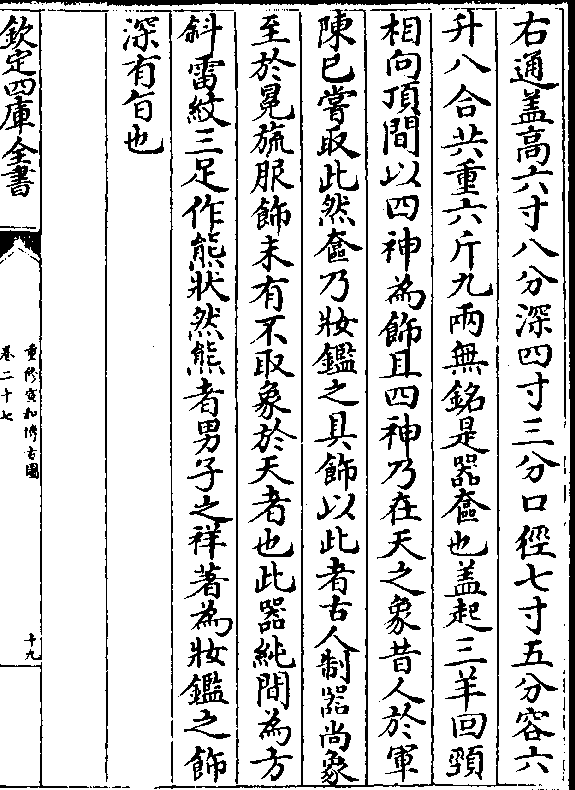 右通盖高六寸八分深四寸三分口徑七寸五分容六
升八合共重六斤九兩無銘是器奩也盖起三羊回頸
相向頂間以四神為飾且四神乃在天之象昔人於軍
陳已嘗取此然奩乃妝鑑之具飾以此者古人制器尚象
至於冕旒服飾未有不取象於天者也此器純間為方
斜雷紋三足作熊狀然熊者男子之祥著為妝鑑之飾
深有旨也
欽定四庫全書
重修宣和博古圖
卷二十七
十九